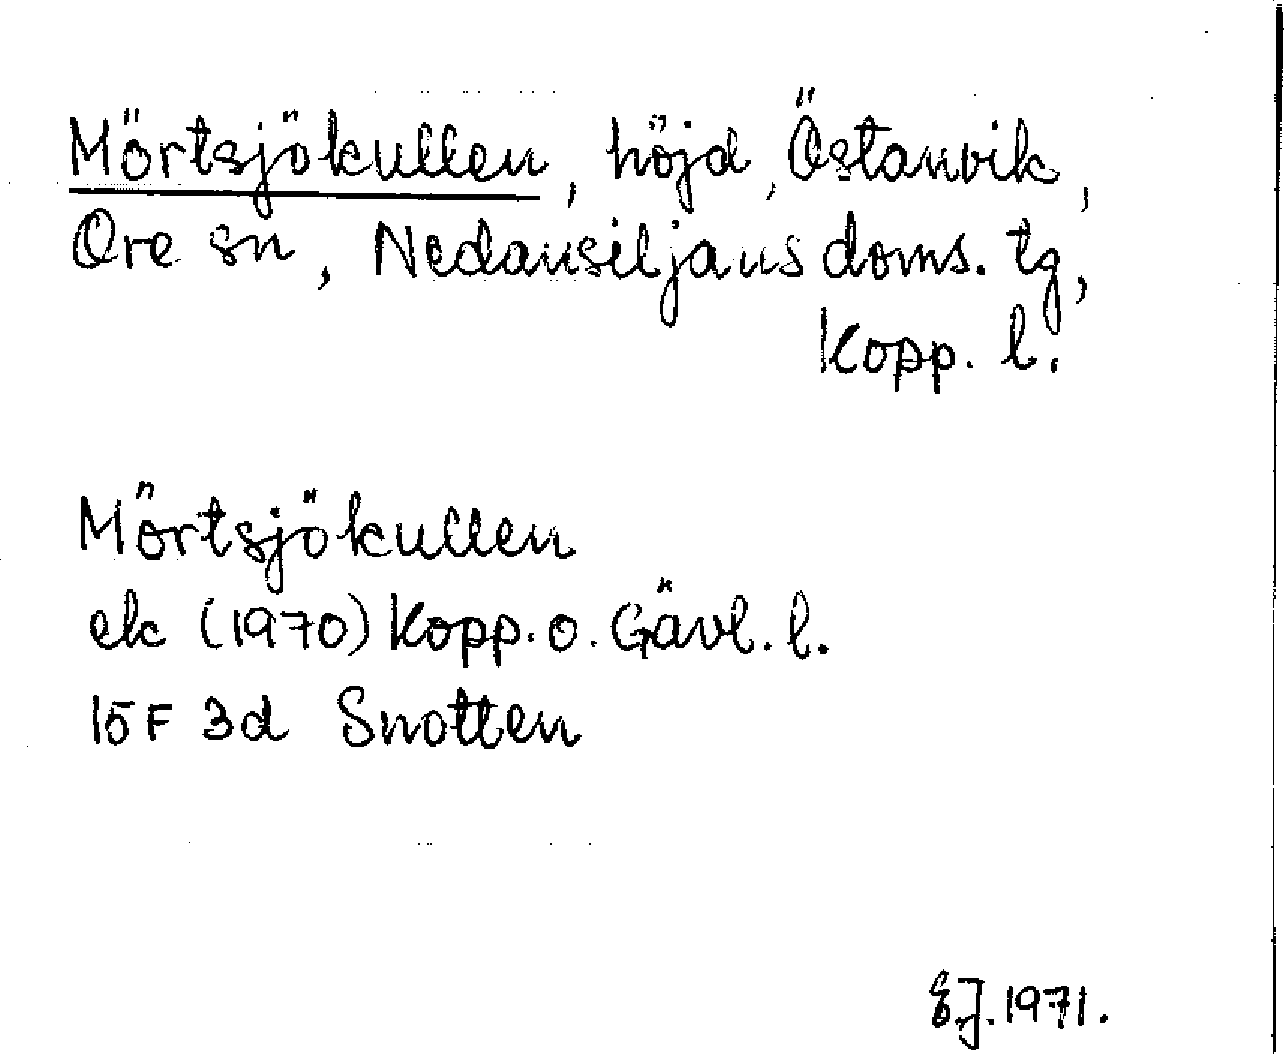 Mörtsjökullen, höjd, Östanvik,
Ore sn, Nedansiljans doms. tg,
Kopp. l.
Mörtsjökullen
ek (1970) Kopp. o. Gävl. l.
15 F 3d Snotten
E.J. 1971.